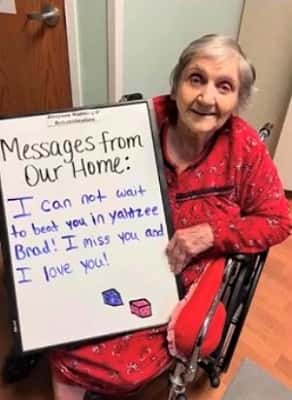 Messages from
Our Home:
I can not wait
to beat you in yahtzee
Brad! I miss you and
I love you!